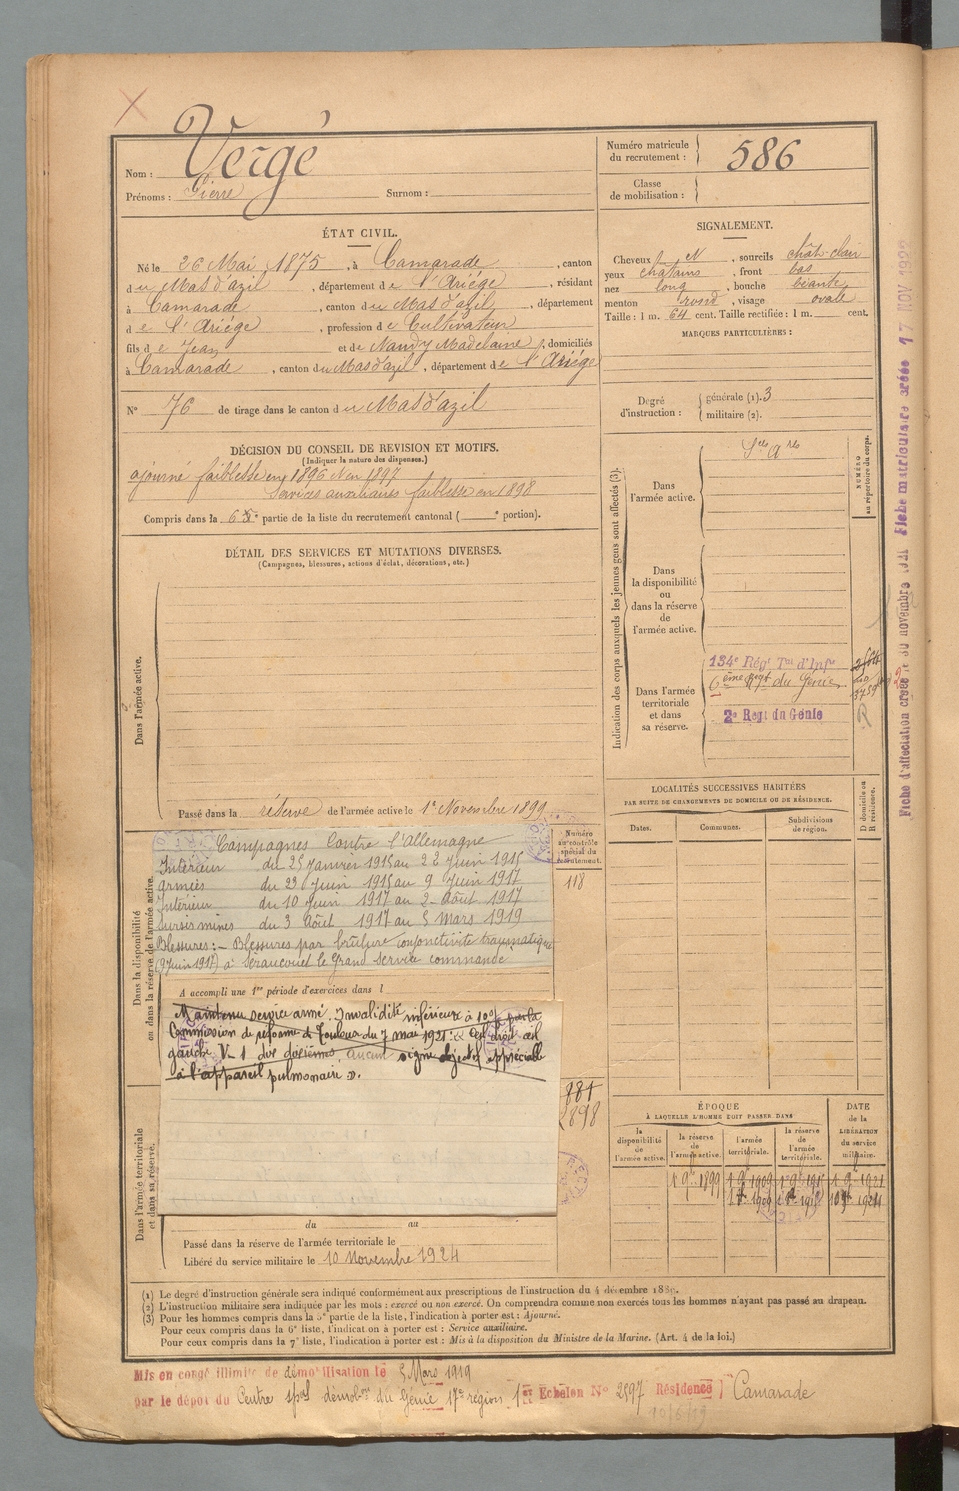 Nom : Vergé
Prénoms : Pierre Surnom :
Numéro matricule
du recrutement : 586
Classe
de mobilisation :
ÉTAT CIVIL.
Né le 26 Mai 1875, à Camarade, canton
du Mas d'azil, département de l'Ariége, résidant
à Camarade, canton du Mas d'azil, département
de l'Ariége, profession de Cultivateur
fils de Jean et de Nandy Madelaine, domiciliés
à Camarade, canton du Mas d'azil, département de l'Ariége
N° 76 de tirage dans le canton du Mas d'azil
SIGNALEMENT.
Cheveux N, sourcils chât-clair
yeux chatains, front bas
nez long, bouche béante
menton rond, visage ovale
Taille : 1 m. 64 cent. Taille rectifiée : 1 m. cent.
MARQUES PARTICULIÈRES :
Degré
d'instruction :
générale (1). 3
militaire (2).
DÉCISION DU CONSEIL DE REVISION ET MOTIFS.
(Indiquer la nature des dispenses.)
ajourné faiblesse en 1896 N en 1897
Services auxiliaires faiblesse en 1898
Compris dans la 6e partie de la liste du recrutement cantonal ( e portion).
DÉTAIL DES SERVICES ET MUTATIONS DIVERSES.
(Campagnes, blessures, actions d'éclat, décorations, etc.)
Dans l'armée active.
Passé dans la réserve de l'armée active le 1er Novembre 1899
Indication des corps auxquels les jeunes gens sont affectés (3).
NUMÉRO
au répertoire du corps.
Dans
l'armée active.
Dans
la disponibilité
ou
dans la réserve
de
l'armée active.
Dans l'armée
territoriale
et dans
sa réserve.
134e Régt Tal d'Infie
6ème Régt du Génie
2e Regt du Génie
Dans la disponibilité
ou dans la réserve de l'armée active.
Campagnes Contre l'Allemagne
Intérieur du 25 Janvier 1915 au 22 Juin 1915
armées du 23 Juin 1915 au 9 Juin 1917
Intérieur du 10 Juin 1917 au 2 Août 1917
Sursis mines du 3 Août 1917 au 5 Mars 1919
Blessures : - Blessures par brûlure conjonctivite traumatique
(9 Juin 1917) à Seraucourt le Grand Service commandé
Numéro
au contrôle
spécial du
recrutement.
118
A accompli une 1re période d'exercices dans l
Maintenu service armé. Invalidité inférieure à 10% par la
Commission de réforme de Toulouse du 7 mai 1921 : œil droit œil
gauche V = 1 aucun signe objectif appréciable
à l'appareil pulmonaire
881
2898
Dans l'armée territoriale
et dans sa réserve.
du au
Passé dans la réserve de l'armée territoriale le
Libéré du service militaire le 10 Novembre 1924
LOCALITÉS SUCCESSIVES HABITÉES
PAR SUITE DE CHANGEMENTS DE DOMICILE OU DE RÉSIDENCE.
Dates. Communes. Subdivisions
de région.
D domicile ou
R résidence.
ÉPOQUE
À LAQUELLE L'HOMME DOIT PASSER DANS
DATE
de la
LIBÉRATION
du service
militaire.
la
disponibilité
de
l'armée active.
la réserve
de
l'armée active.
l'armée
territoriale.
la réserve
de
l'armée
territoriale.
(1) Le degré d'instruction générale sera indiqué conformément aux prescriptions de l'instruction du 4 décembre 1889.
(2) L'instruction militaire sera indiquée par les mots : exercé ou non exercé. On comprendra comme non exercés tous les hommes n'ayant pas passé au drapeau.
(3) Pour les hommes compris dans la 5e partie de la liste, l'indication à porter est : Ajourné.
Pour ceux compris dans la 6e liste, l'indication à porter est : Service auxiliaire.
Pour ceux compris dans la 7e liste, l'indication à porter est : Mis à la disposition du Ministre de la Marine. (Art. 4 de la loi.)
Mis en congé illimité de démobilisation le 5 Mars 1919
par le dépôt du Centre spal démobon du Génie 17e région 1er Echelon N° 2597 Résidence Camarade